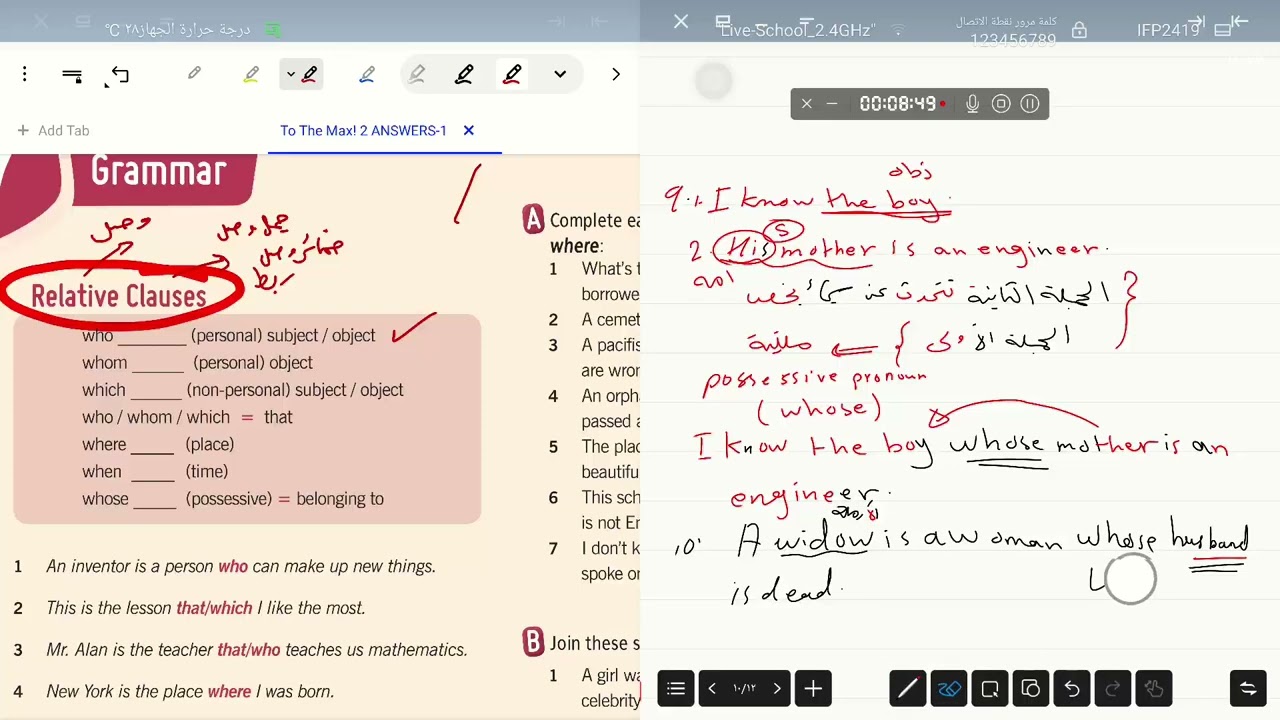 درجة حرارة الجهاز٢٨ °C
Add Tab
To The Max! 2 ANSWERS-1
Grammar
وصل
ضمائر وصل
ربط
Relative Clauses
who (personal) subject / object
whom (personal) object
which (non-personal) subject / object
who / whom / which = that
where (place)
when (time)
whose (possessive) = belonging to
1 An inventor is a person who can make up new things.
2 This is the lesson that/which I like the most.
3 Mr. Alan is the teacher that/who teaches us mathematics.
4 New York is the place where I was born.
A Complete ea
where:
1 What's t
borrowe
2 A cemet
3 A pacifis
are wron
4 An orpha
passed a
5 The plac
beautifu
6 This sch
is not En
7 I don't k
spoke on
B Join these s
1 A girl wa
celebrity
"Live-School_2.4GHz"
كلمة مرور نقطة الاتصال
123456789
IFP2419
00:08:49
obj
9.1. I know the boy.
S
2. His mother is an engineer.
الجملة الثانية تتحدث عن شيء يخص
الجملة الأولى ملكية
possessive pronoun
(whose)
I know the boy whose mother is an
engineer.
10. A widow is a woman whose husband
is dead.
١٠/١٢